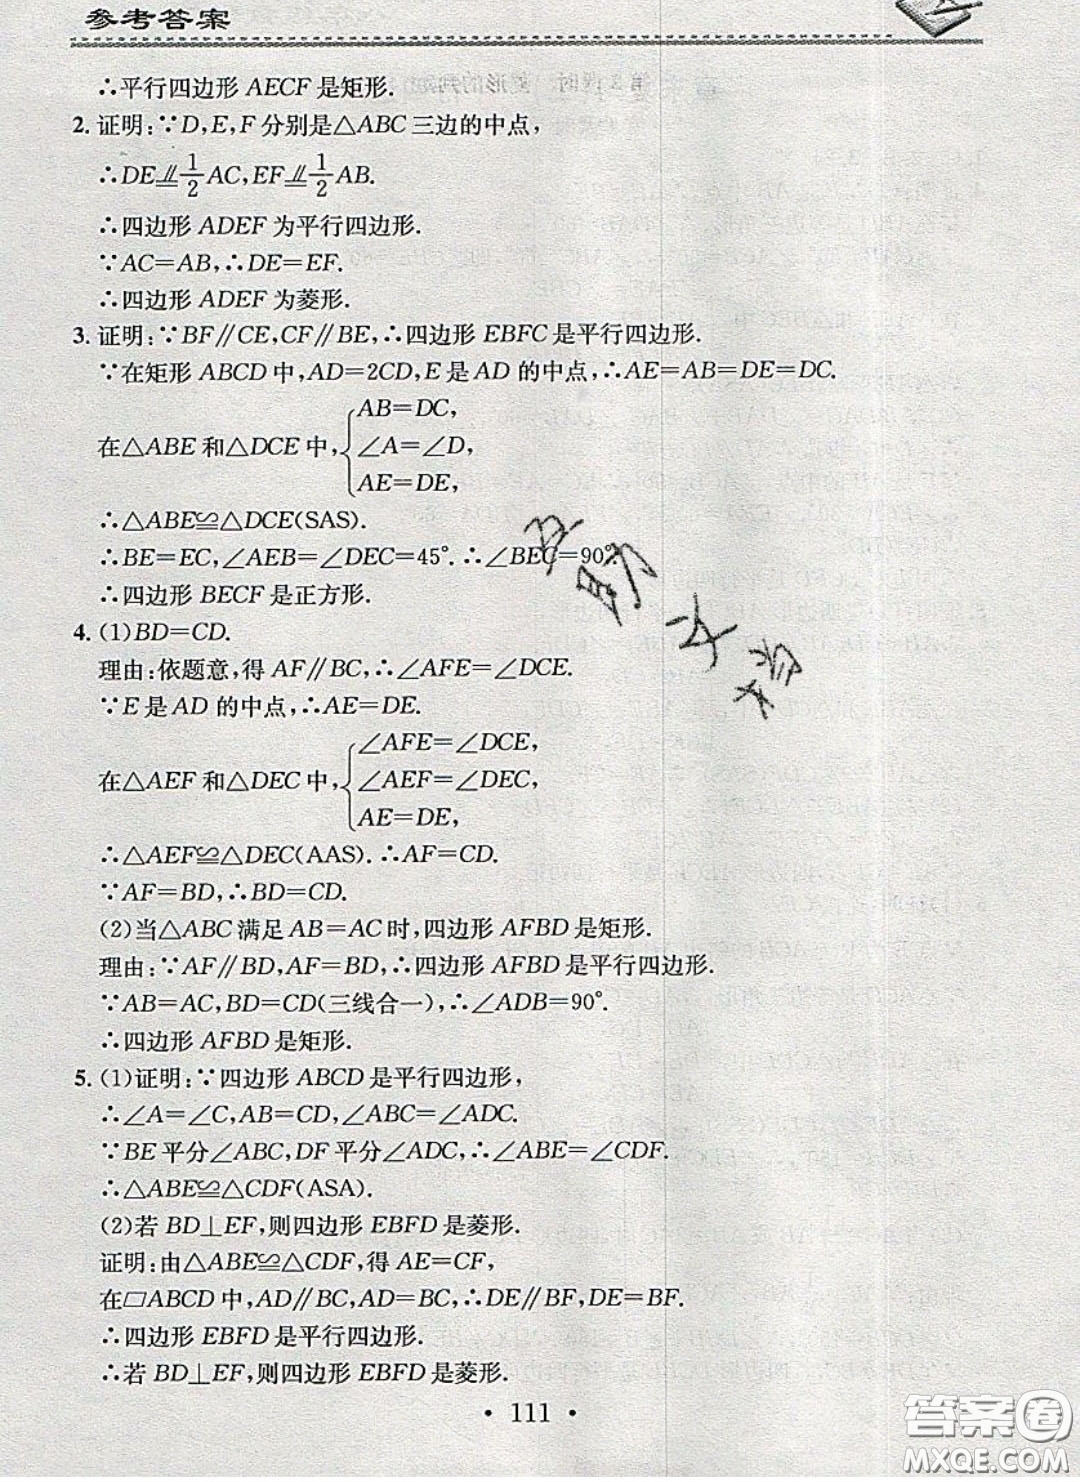 参考答案
∴平行四边形 AECF 是矩形.
2. 证明:∵D,E,F 分别是△ABC 三边的中点,
∴DE⫽1/2 AC,EF⫽1/2 AB.
∴四边形 ADEF 为平行四边形.
∵AC=AB,∴DE=EF.
∴四边形 ADEF 为菱形.
3. 证明:∵BF∥CE,CF∥BE,∴四边形 EBFC 是平行四边形.
∵在矩形 ABCD 中,AD=2CD,E 是 AD 的中点,∴AE=AB=DE=DC.
AB=DC,
在△ABE 和△DCE 中,{∠A=∠D,
AE=DE,
∴△ABE≌△DCE(SAS).
∴BE=EC,∠AEB=∠DEC=45°.∴∠BEC=90°.
∴四边形 BECF 是正方形.
4. (1)BD=CD.
理由:依题意,得 AF∥BC,∴∠AFE=∠DCE.
∵E 是 AD 的中点,∴AE=DE.
∠AFE=∠DCE,
在△AEF 和△DEC 中,{∠AEF=∠DEC,
AE=DE,
∴△AEF≌△DEC(AAS).∴AF=CD.
∵AF=BD,∴BD=CD.
(2)当△ABC 满足 AB=AC 时,四边形 AFBD 是矩形.
理由:∵AF∥BD,AF=BD,∴四边形 AFBD 是平行四边形.
∵AB=AC,BD=CD(三线合一),∴∠ADB=90°.
∴四边形 AFBD 是矩形.
5. (1)证明:∵四边形 ABCD 是平行四边形,
∴∠A=∠C,AB=CD,∠ABC=∠ADC.
∵BE 平分∠ABC,DF 平分∠ADC,∴∠ABE=∠CDF.
∴△ABE≌△CDF(ASA).
(2)若 BD⊥EF,则四边形 EBFD 是菱形.
证明:由△ABE≌△CDF,得 AE=CF,
在□ABCD 中,AD∥BC,AD=BC,∴DE∥BF,DE=BF.
∴四边形 EBFD 是平行四边形.
∴若 BD⊥EF,则四边形 EBFD 是菱形.
• 111 •
答案圈
MXQE.COM